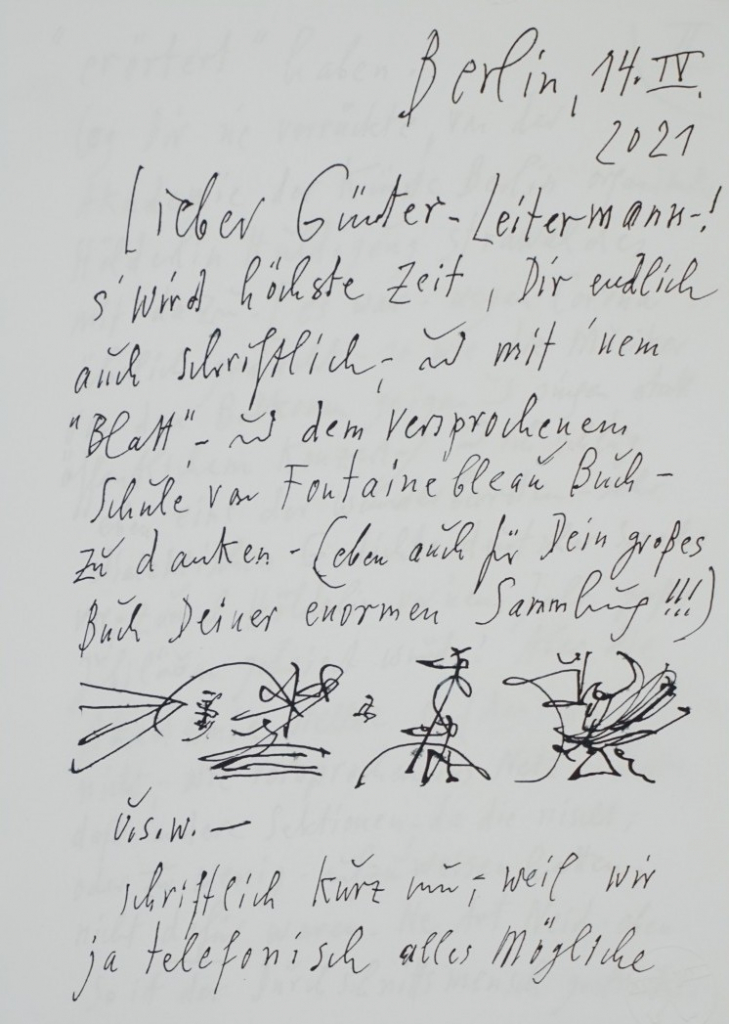 Berlin, 14. IV.
2021
Lieber Günter - Leitermann -!
s' wird höchste Zeit, Dir endlich
auch schriftlich -, und mit 'nem
"Blatt" - und dem versprochenem
Schule von Fontainebleau Buch -
zu danken - (eben auch für Dein großes
Buch Deiner enormen Sammlung!!!)
U.s.w. —
schriftlich kurz nur, weil wir
ja telefonisch alles Mögliche